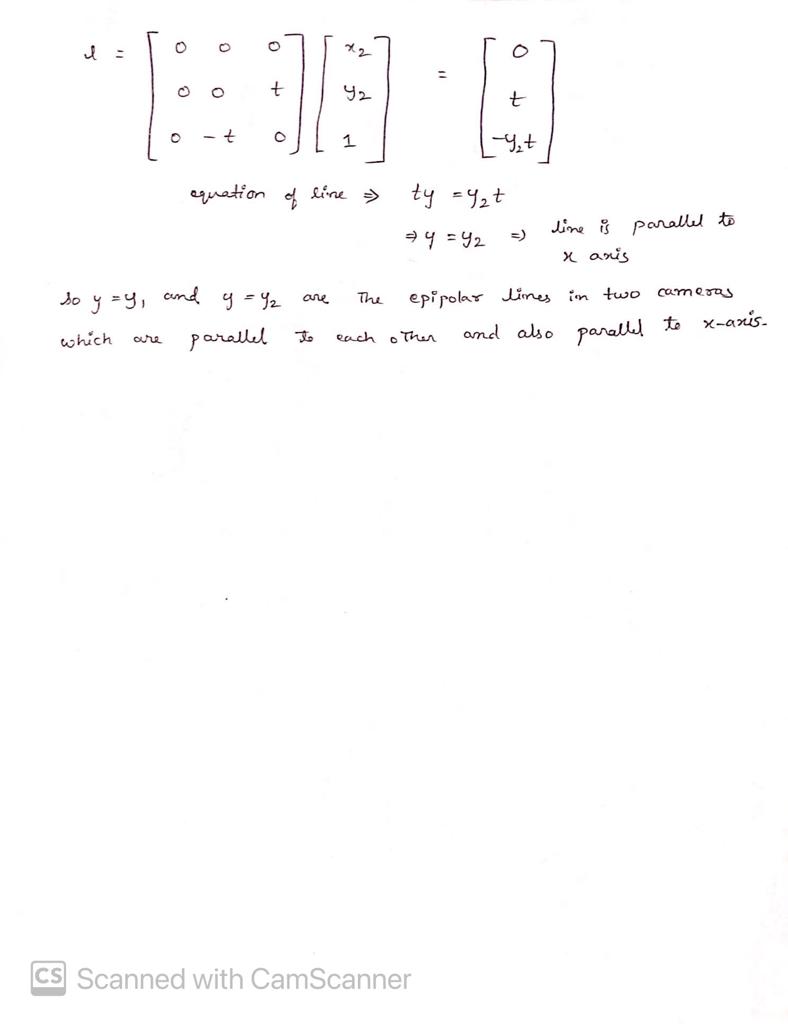 l = [ 0 0 0 ] [ x₂ ] = [ 0 ]
[ 0 0 t ] [ y₂ ] [ t ]
[ 0 -t 0 ] [ 1 ] [ -y₂t ]
equation of line ⇒ ty = y₂t
⇒ y = y₂ ⇒ line is parallel to
x axis
so y = y₁ and y = y₂ are The epipolar lines in two cameras
which are parallel to each other and also parallel to x-axis.
CS Scanned with CamScanner